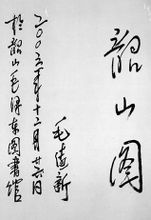 韶山图
毛远新
二〇〇三年十二月廿六日
于韶山毛泽东图书馆